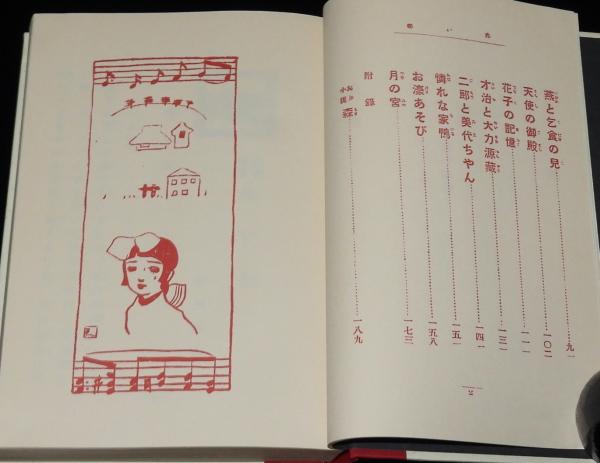 燕と乞食の兒 九一
天使の御殿 一〇二
花子の記憶 一一一
才治と大力源蔵 一三一
二郎と美代ちやん 一四一
憐れな家鴨 一五一
お濠あそび 一五八
月の宮 一七三
附録
森 一八九